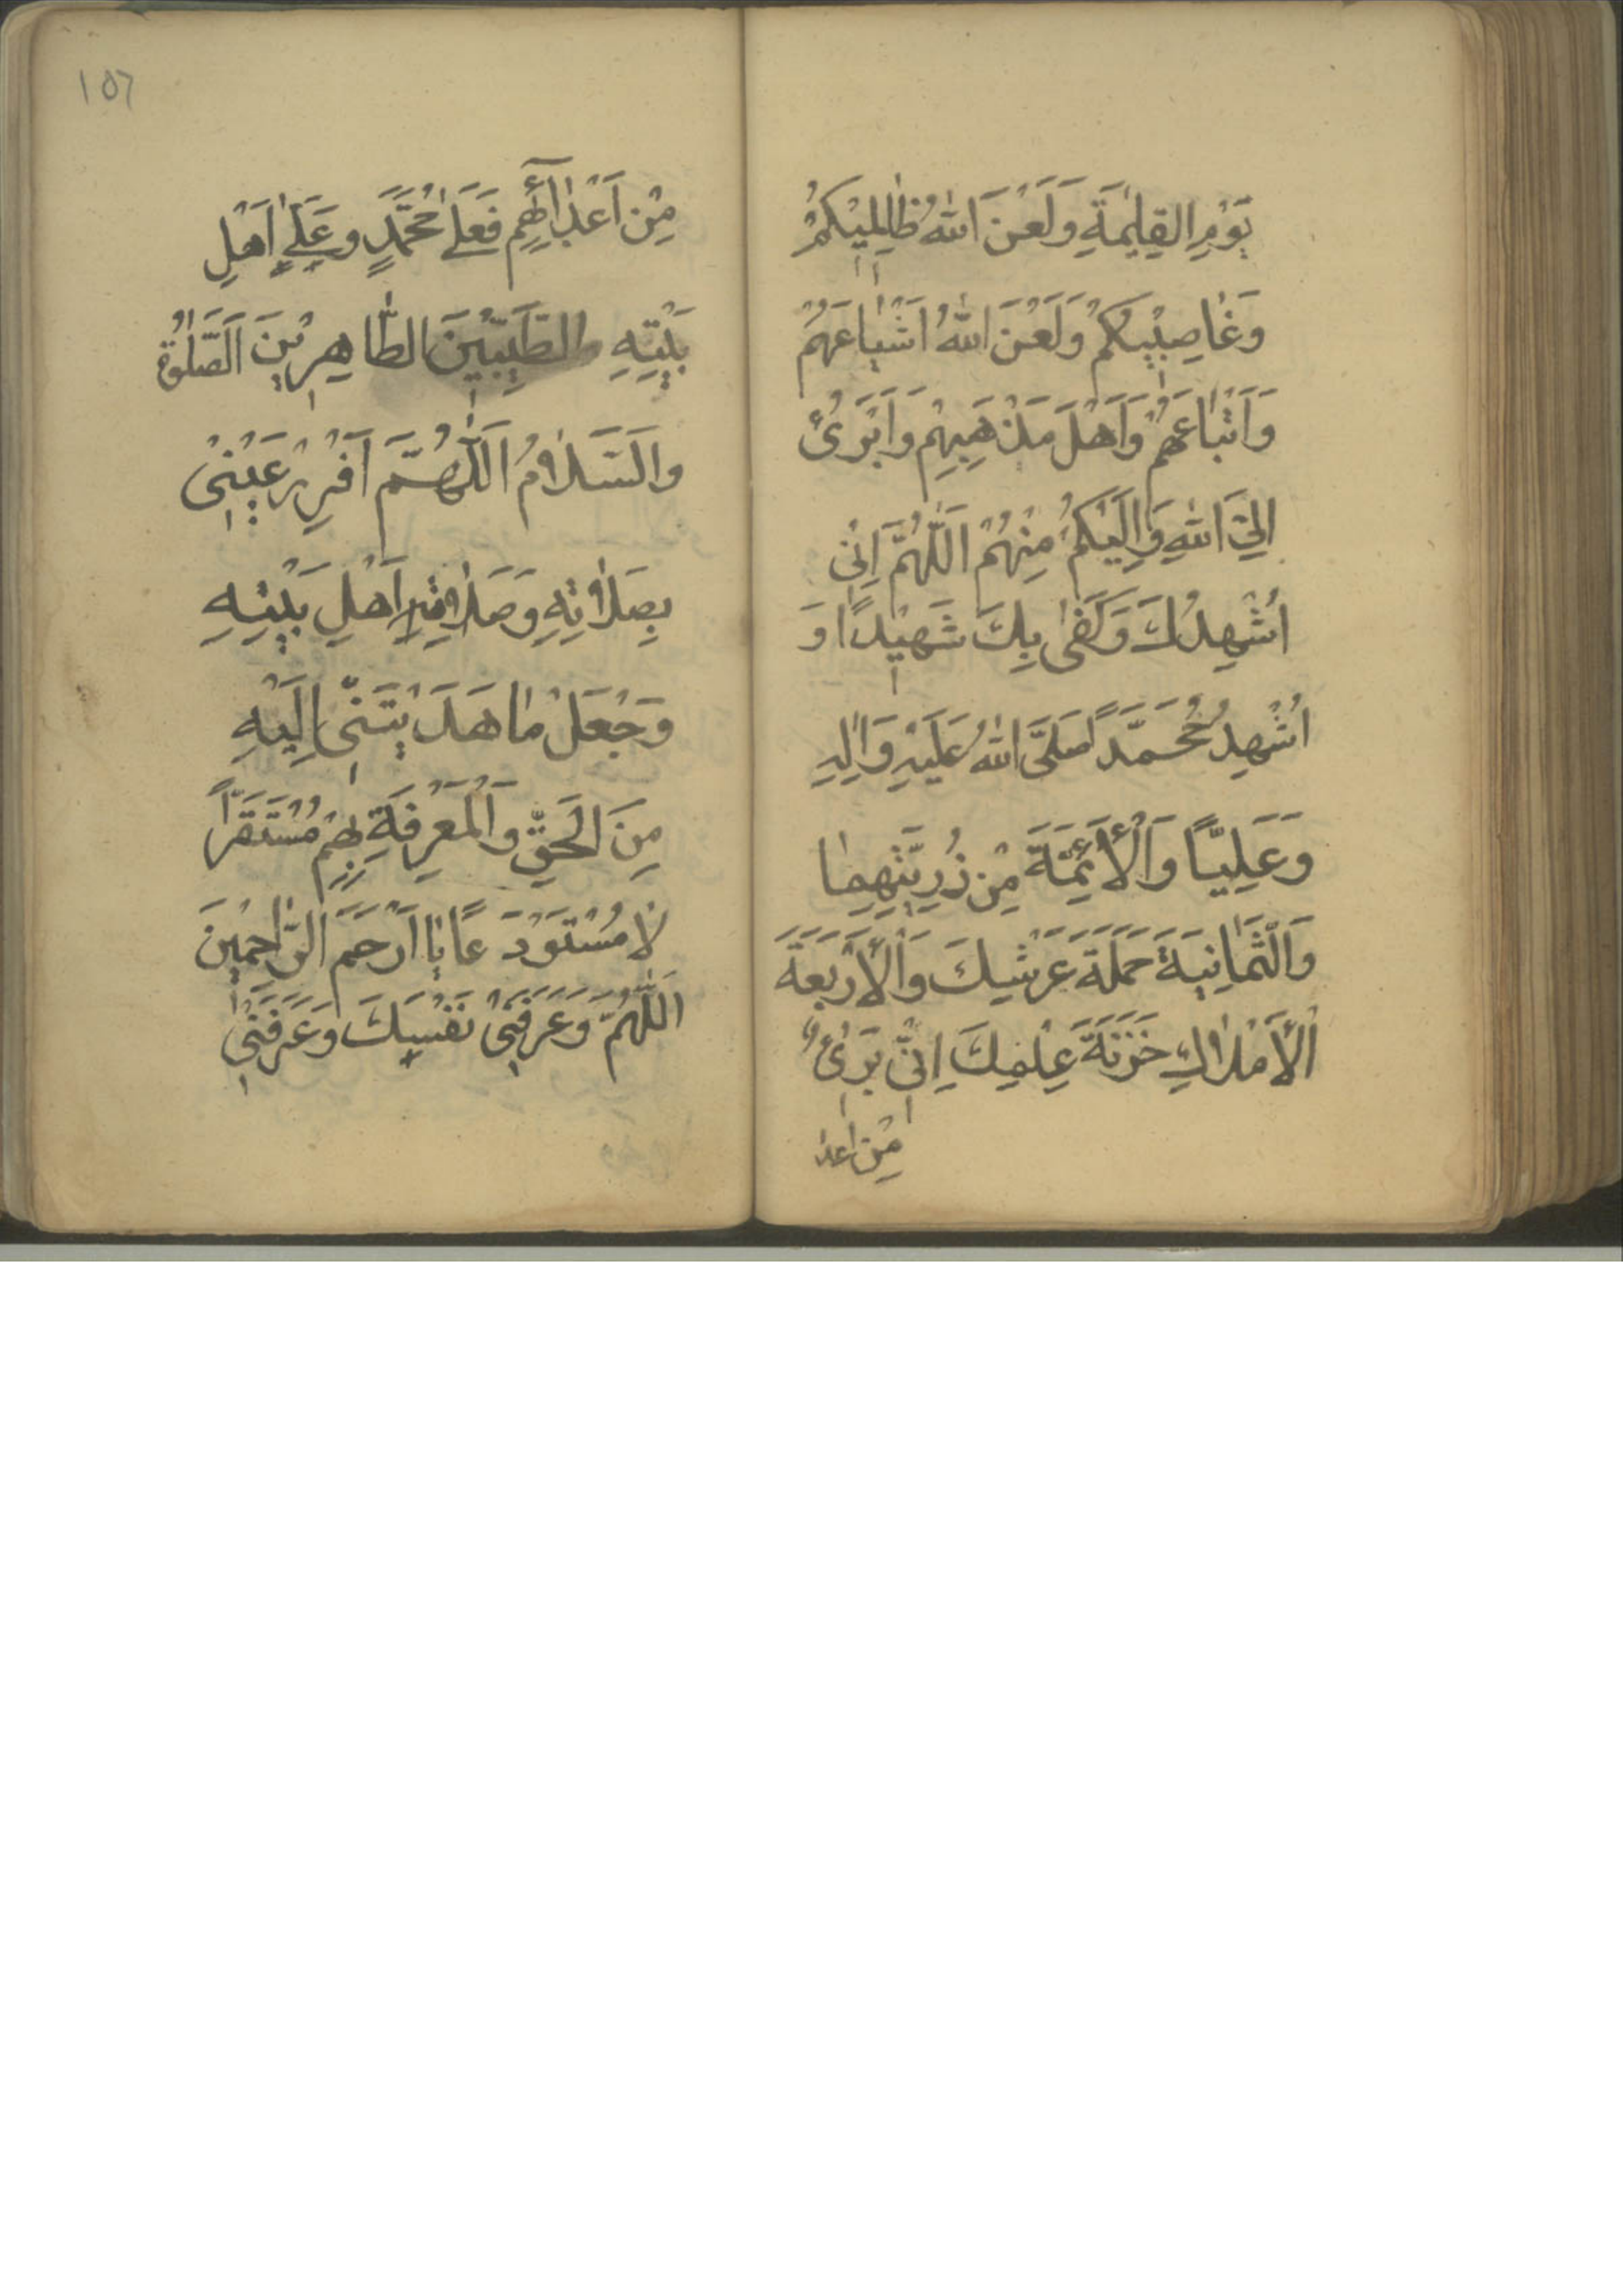 يَوْمِ القِيٰمَةِ وَلَعَنَ اللهُ ظٰالِمِيْكُمْ
وَغٰاصِبِيْكُمْ وَلَعَنَ اللهُ اَشْيٰاعَهُمْ
وَاَتْبٰاعَهُمْ وَاَهْلَ مَذْهَبِهِمْ وَاَبْرَئُ
اِلَيَ اللهِ وَاِلَيْكُمْ مِنْهُمْ اَللّٰهُمَّ اِنّٖى
اُشْهِدُكَ وَكَفٰى بِكَ شَهِيْدًا وَ
اُشْهِدُ مُحَمَّدًا صَلَّى اللهُ عَلَيْهِ وَاٰلِهِ
وَعَلِيًّا وَالْأَئِمَّةَ مِنْ ذُرِيَّتِهِمٰا
وَالْثَمٰانِيَةَ حَمَلَةَ عَرْشِكَ وَالْأَرْبَعَةَ
الْأَمْلٰاكِ خَزَنَةَ عِلْمِكَ اِنّٖى بَرٖىْٔ
مِنْ اعدا
١٥٦
مِنْ اَعْدٰائِهِمْ فَعَلَى مُحَمَّدٍ وعَلَىٰ اَهْلِ
بَيْتِهِ والطَيِّبِيْنَ الطّٰاهِرِيْنَ اَلصَّلٰوةُ
والَسَّلٰامُ اَللّٰهُمَّ اَقْرِرْ عَيْنِىْ
بِصَلٰاتِهِ وَصَلٰاةِ اَهْلِ بَيْتِهِ
وَجْعَلْ مٰا هَدَيْتَنٖى اِلَيْهِ
مِنَ الَحَقِّ وَالْمَعْرِفَةِ بِهِمْ مُسْتَقَرًّا
لٰا مُسْتَوْدَعًا يٰا اَرْحَمَ الرّٰاحِمِيْنَ
اَللّٰهُمَّ وَعَرَفَنٖىْ نَفْسِكَ وَعَرَفَنٖىْ